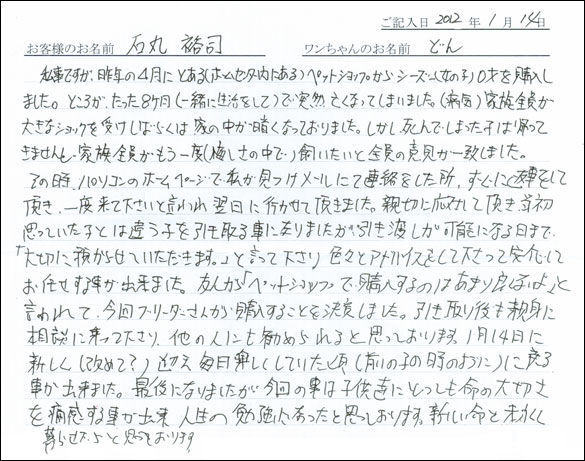 ご記入日 2012 年 1 月 14 日
お客様のお名前 石丸 裕司 ワンちゃんのお名前 どん
私事ですが、昨年の4月にとある(ホームセンター内にある)ペットショップからシーズー(女の子)0才を購入し
ました。ところが、たった8ヶ月(一緒に生活をして)で突然亡くなってしまいました。(病気)家族全員が
大きなショックを受けしばらくは家の中が暗くなっておりました。しかし死んでしまった子は帰って
きませんし家族全員がもう一度(悔しさの中で)飼いたいと全員の意見が一致しました。
その時、パソコンのホームページで私が見つけメールにて連絡をした所、すぐにご返事をして
頂き、一度来て下さいと言われ翌日に行かせて頂きました。親切に応対して頂き、当初
思っていた子とは違う子を引き取る事になりましたが、引き渡しが可能になる日まで、
「大切に預からせていただきます。」と言って下さり色々とアドバイスをして下さって安心して
お任せする事が出来ました。友人から「ペットショップで購入するのはあまり良くないよ」と
言われて、今回ブリーダーさんから購入することを決意しました。引き取り後も親身に
相談に乗って下さり、他の人にも勧められると思っております。1月14日に
新しく(改めて?)迎え毎日楽しくしていた頃(前の子の時のように)に戻る
事が出来ました。最後になりましたが今回の事は子供達にとっても命の大切さ
を痛感する事が出来 人生の勉強になったと思っております。新しい命と末永く
暮らせたらと思っております